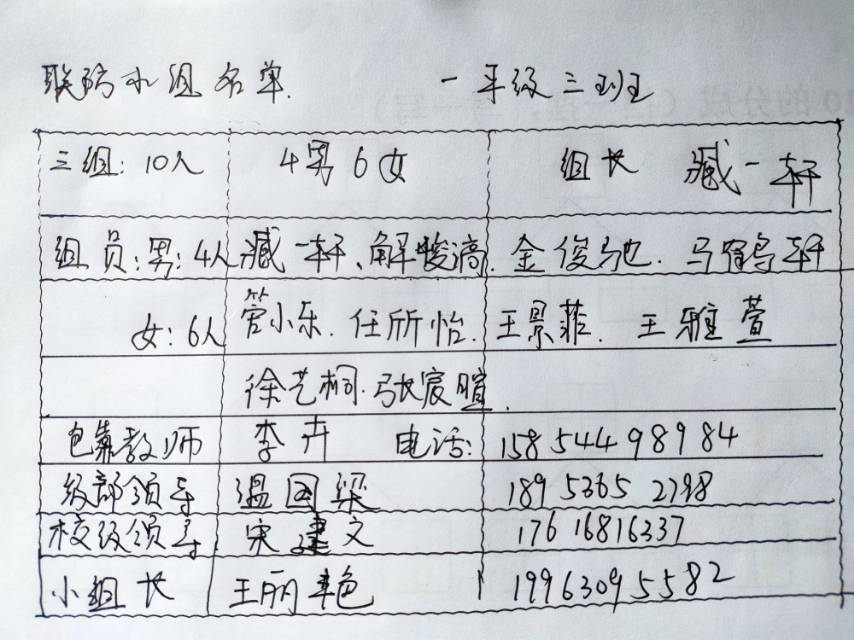 联防小组名单. 一年级三班
三组: 10人 4男6女 组长 臧一轩
组员: 男: 4人 臧一轩、解骏滈. 金俊驰. 马鹤轩
女: 6人 管小乐. 任所怡. 王景菲. 王雅萱
徐艺桐. 张宸暄.
包靠教师 李卉 电话: 15854498984
级部领导 温国梁 18953652798
校级领导 宋建文 17616816337
小组长 王丽艳 19963095582